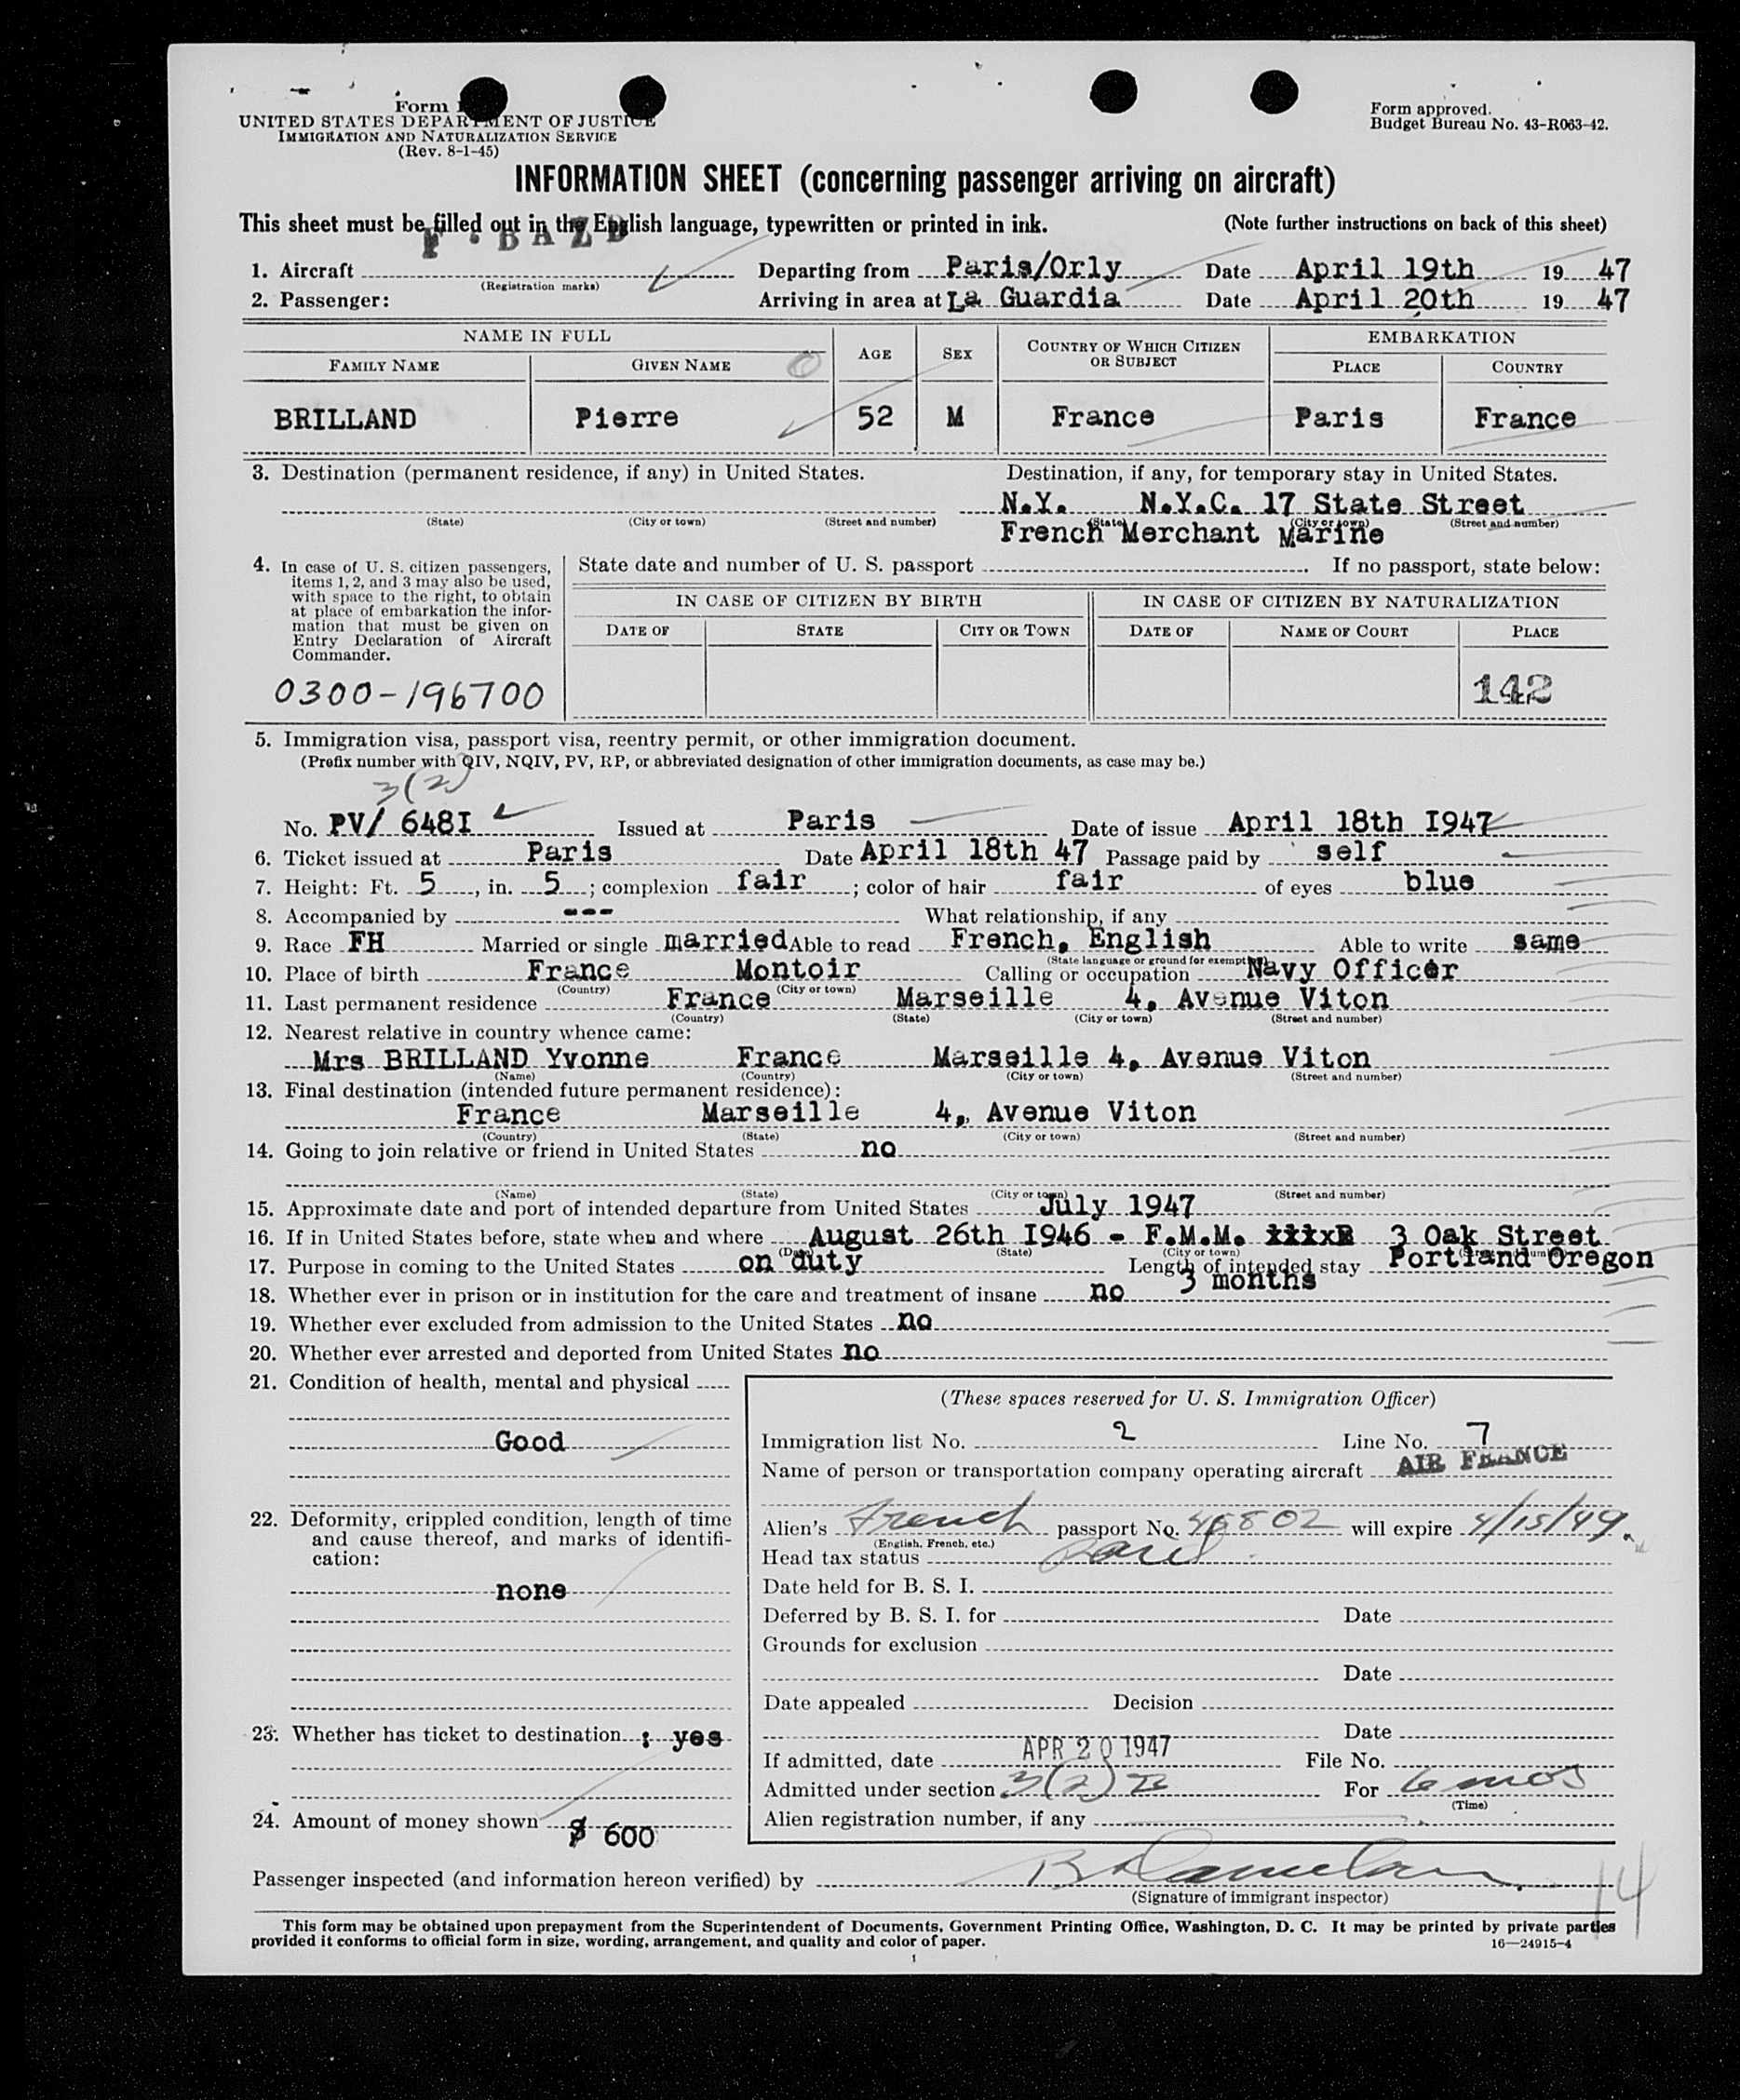 Form
UNITED STATES DEPARTMENT OF JUSTICE
IMMIGRATION AND NATURALIZATION SERVICE
(Rev. 8-1-45)
Form approved.
Budget Bureau No. 43-R063-42.
INFORMATION SHEET (concerning passenger arriving on aircraft)
This sheet must be filled out in the English language, typewritten or printed in ink. (Note further instructions on back of this sheet)
F · BAZD
1. Aircraft Departing from Paris/Orly Date April 19th 19 47
(Registration marks)
2. Passenger: Arriving in area at La Guardia Date April 20th 19 47
NAME IN FULL AGE SEX COUNTRY OF WHICH CITIZEN OR SUBJECT EMBARKATION
FAMILY NAME GIVEN NAME PLACE COUNTRY
BRILLAND Pierre 52 M France Paris France
3. Destination (permanent residence, if any) in United States. Destination, if any, for temporary stay in United States.
N.Y. N.Y.C. 17 State Street
(State) (City or town) (Street and number) (State) (City or town) (Street and number)
French Merchant Marine
4. In case of U. S. citizen passengers, items 1, 2, and 3 may also be used, with space to the right, to obtain at place of embarkation the information that must be given on Entry Declaration of Aircraft Commander.
State date and number of U. S. passport . If no passport, state below:
IN CASE OF CITIZEN BY BIRTH IN CASE OF CITIZEN BY NATURALIZATION
DATE OF STATE CITY OR TOWN DATE OF NAME OF COURT PLACE
0300-196700 142
5. Immigration visa, passport visa, reentry permit, or other immigration document.
(Prefix number with QIV, NQIV, PV, RP, or abbreviated designation of other immigration documents, as case may be.)
3(2)
No. PV/ 648I Issued at Paris Date of issue April 18th I947
6. Ticket issued at Paris Date April 18th 47 Passage paid by self
7. Height: Ft. 5, in. 5; complexion fair; color of hair fair of eyes blue
8. Accompanied by --- What relationship, if any
9. Race FH Married or single married Able to read French, English Able to write same
(State language or ground for exemption)
10. Place of birth France Montoir Calling or occupation Navy Officer
(Country) (City or town)
11. Last permanent residence France Marseille 4, Avenue Viton
(Country) (State) (City or town) (Street and number)
12. Nearest relative in country whence came:
Mrs BRILLAND Yvonne France Marseille 4, Avenue Viton
(Name) (Country) (City or town) (Street and number)
13. Final destination (intended future permanent residence):
France Marseille 4, Avenue Viton
(Country) (State) (City or town) (Street and number)
14. Going to join relative or friend in United States no
(Name) (State) (City or town) (Street and number)
15. Approximate date and port of intended departure from United States July 1947
16. If in United States before, state when and where August 26th I946 - F.M.M. 3 Oak Street
(Date) (State) (City or town) (Street and number)
Portland Oregon
17. Purpose in coming to the United States on duty Length of intended stay 3 months
18. Whether ever in prison or in institution for the care and treatment of insane no
19. Whether ever excluded from admission to the United States no
20. Whether ever arrested and deported from United States no
21. Condition of health, mental and physical
Good
22. Deformity, crippled condition, length of time and cause thereof, and marks of identification:
none
23. Whether has ticket to destination : yes
24. Amount of money shown $ 600
(These spaces reserved for U. S. Immigration Officer)
Immigration list No. 2 Line No. 7
Name of person or transportation company operating aircraft AIR FRANCE
Alien's French passport No. 46802 will expire 4/15/49.
(English, French, etc.)
Paris
Head tax status
Date held for B. S. I.
Deferred by B. S. I. for Date
Grounds for exclusion
Date
Date appealed Decision
Date
If admitted, date APR 20 1947 File No.
Admitted under section 3(2) For 6 mos
(Time)
Alien registration number, if any
Passenger inspected (and information hereon verified) by
(Signature of immigrant inspector)
14
This form may be obtained upon prepayment from the Superintendent of Documents, Government Printing Office, Washington, D. C. It may be printed by private parties
provided it conforms to official form in size, wording, arrangement, and quality and color of paper. 16—24915-4
1